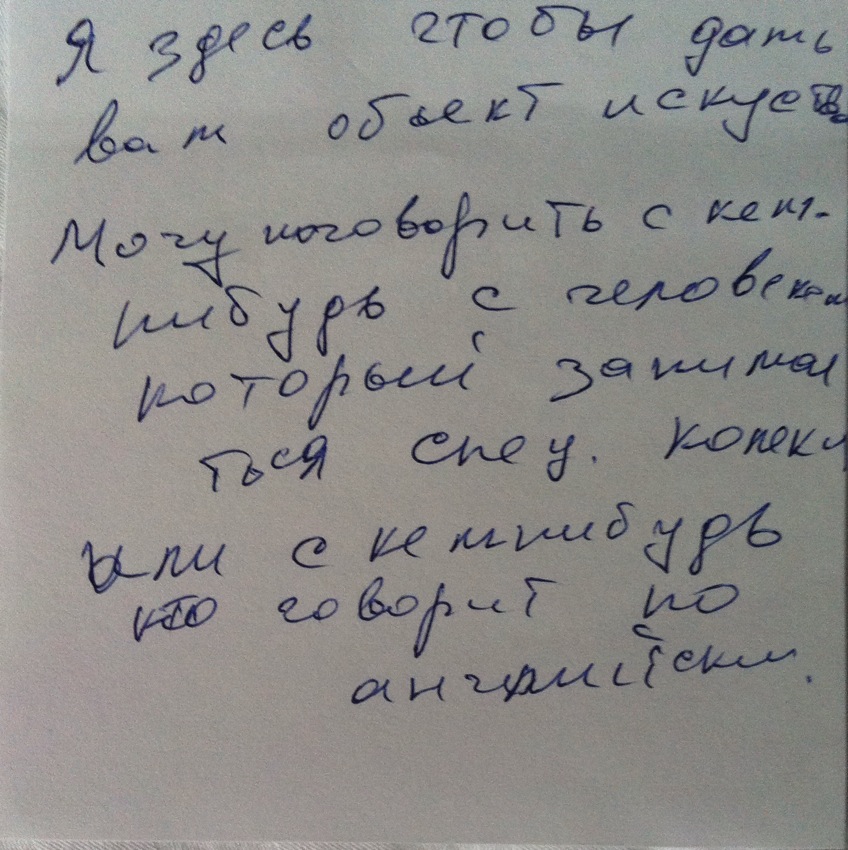 Я здесь чтобы дать
вам объект искуства
Могу поговорить с кем-
нибудь с человеком
который занимае
ться спец. колек
или с кемнибудь
кто говорит по
английски.